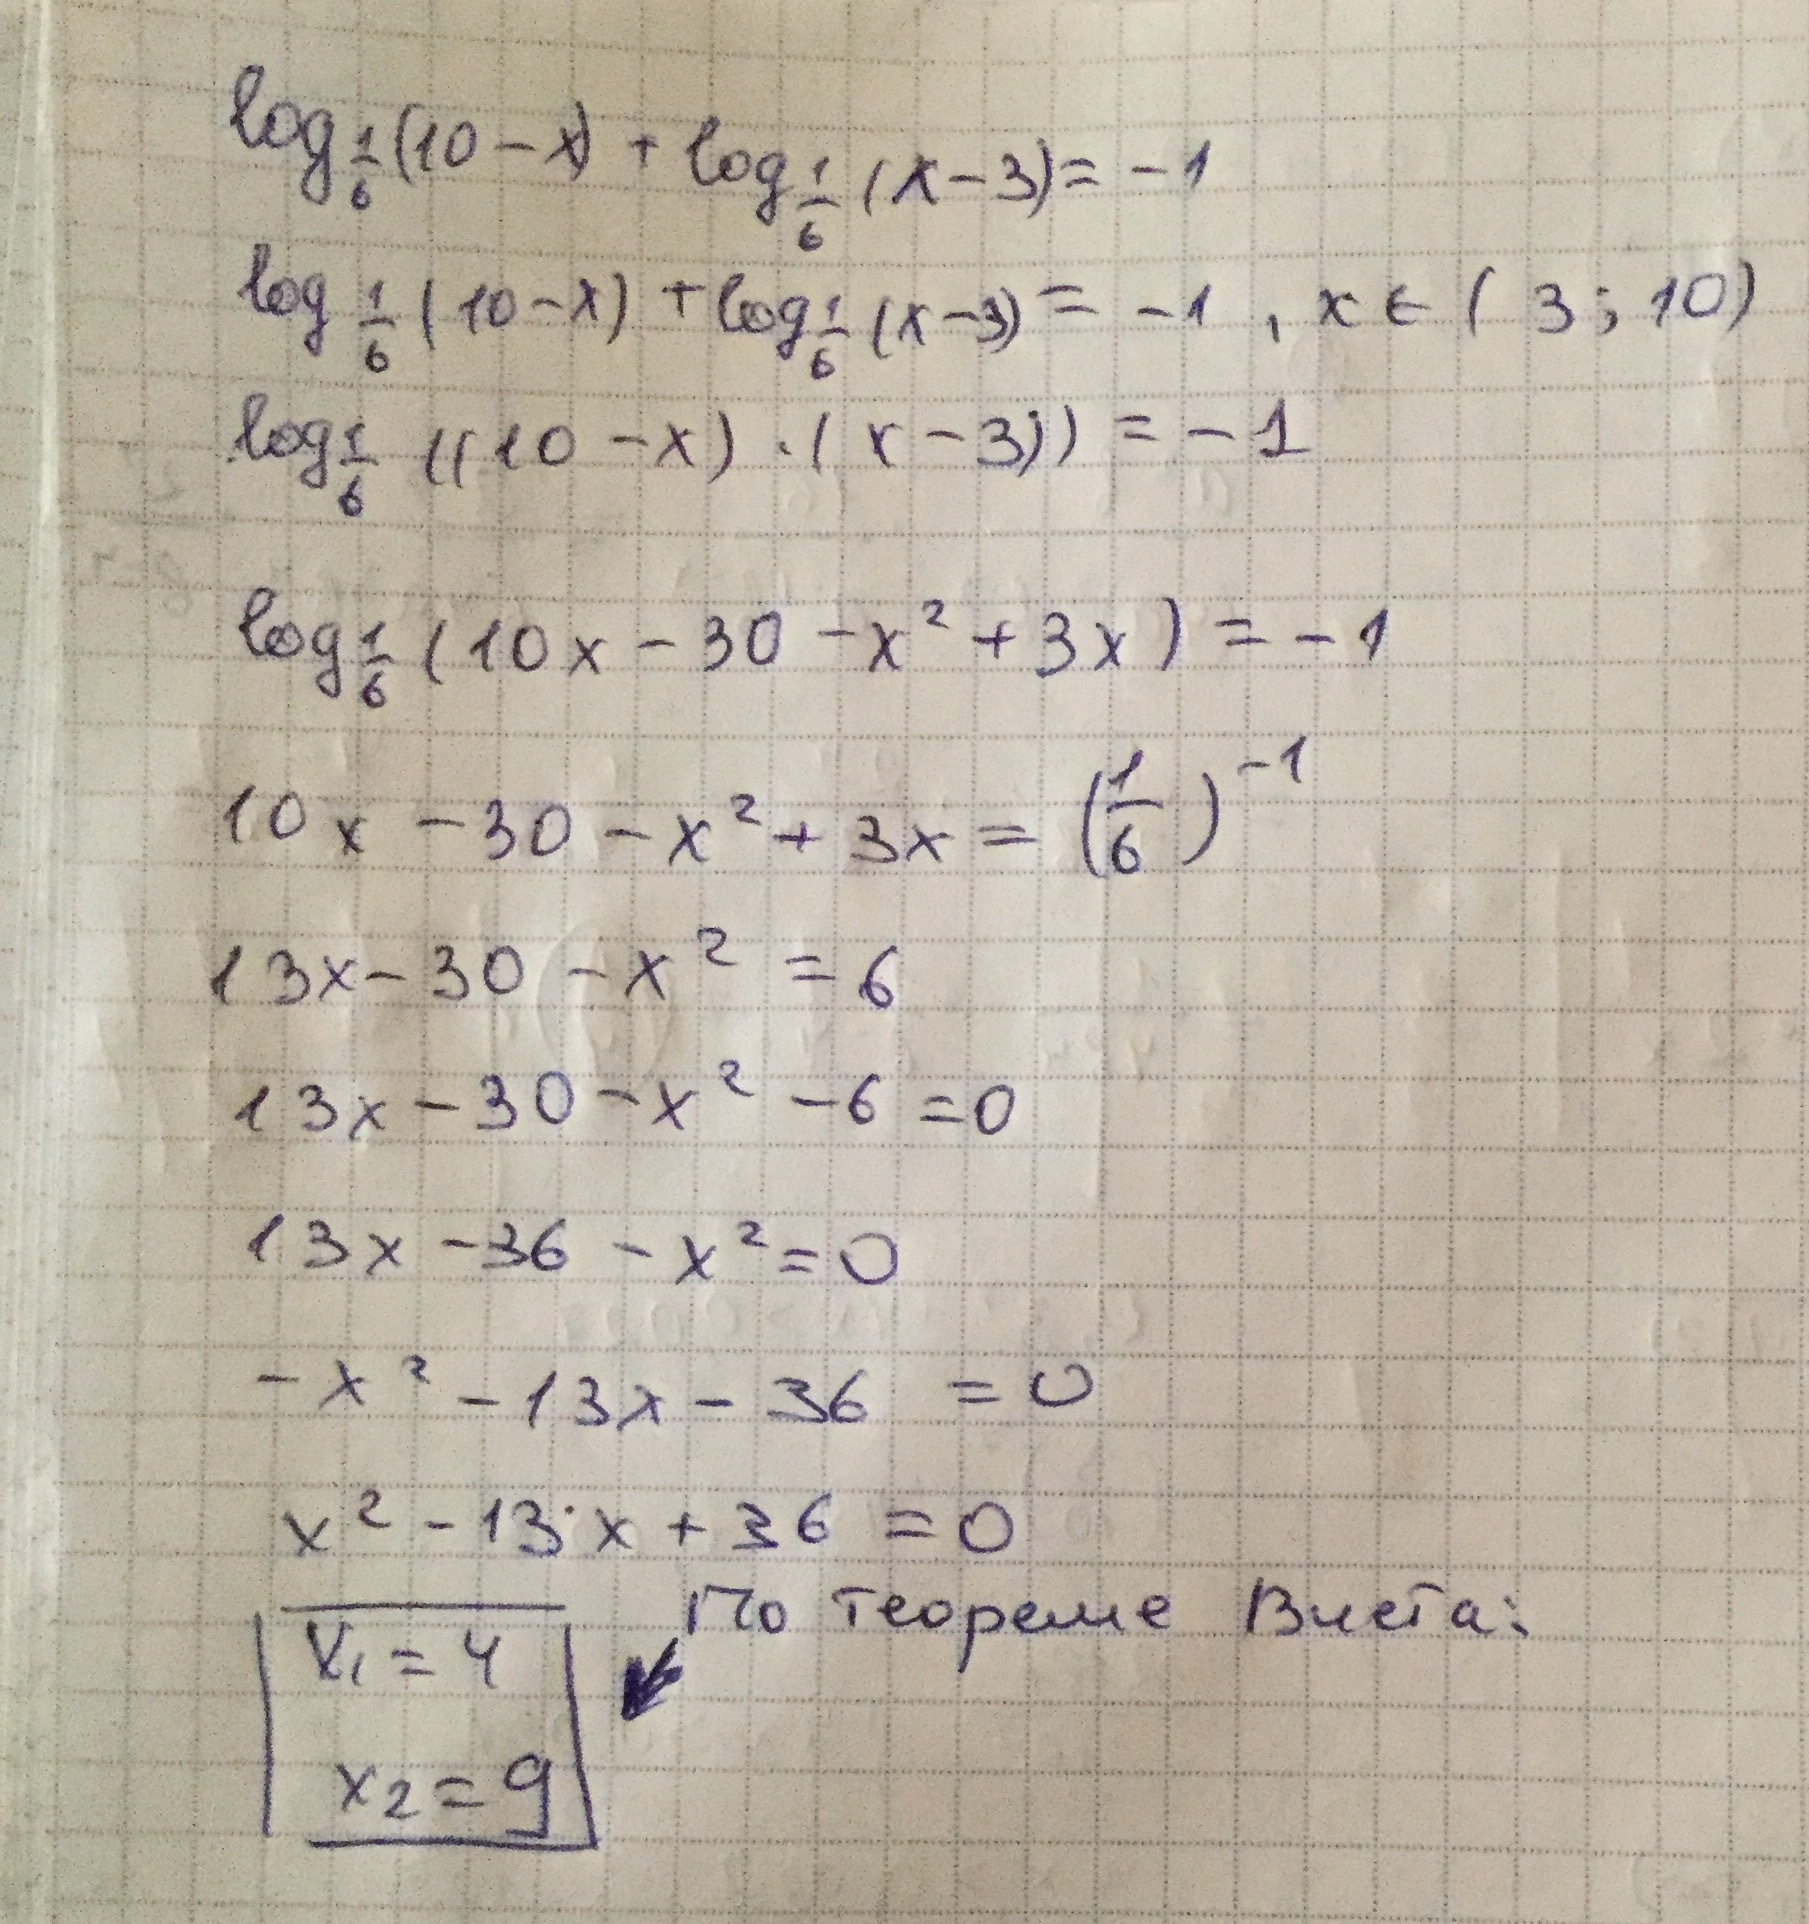 log_{1/6}(10-x) + log_{1/6}(x-3) = -1
log_{1/6}(10-x) + log_{1/6}(x-3) = -1, x ∈ (3; 10)
log_{1/6}((10-x)·(x-3)) = -1
log_{1/6}(10x-30-x²+3x) = -1
10x-30-x²+3x = (1/6)^{-1}
13x-30-x² = 6
13x-30-x²-6 = 0
13x-36-x² = 0
-x²-13x-36 = 0
x²-13·x+36 = 0
По теореме Виета:
x₁ = 4
x₂ = 9